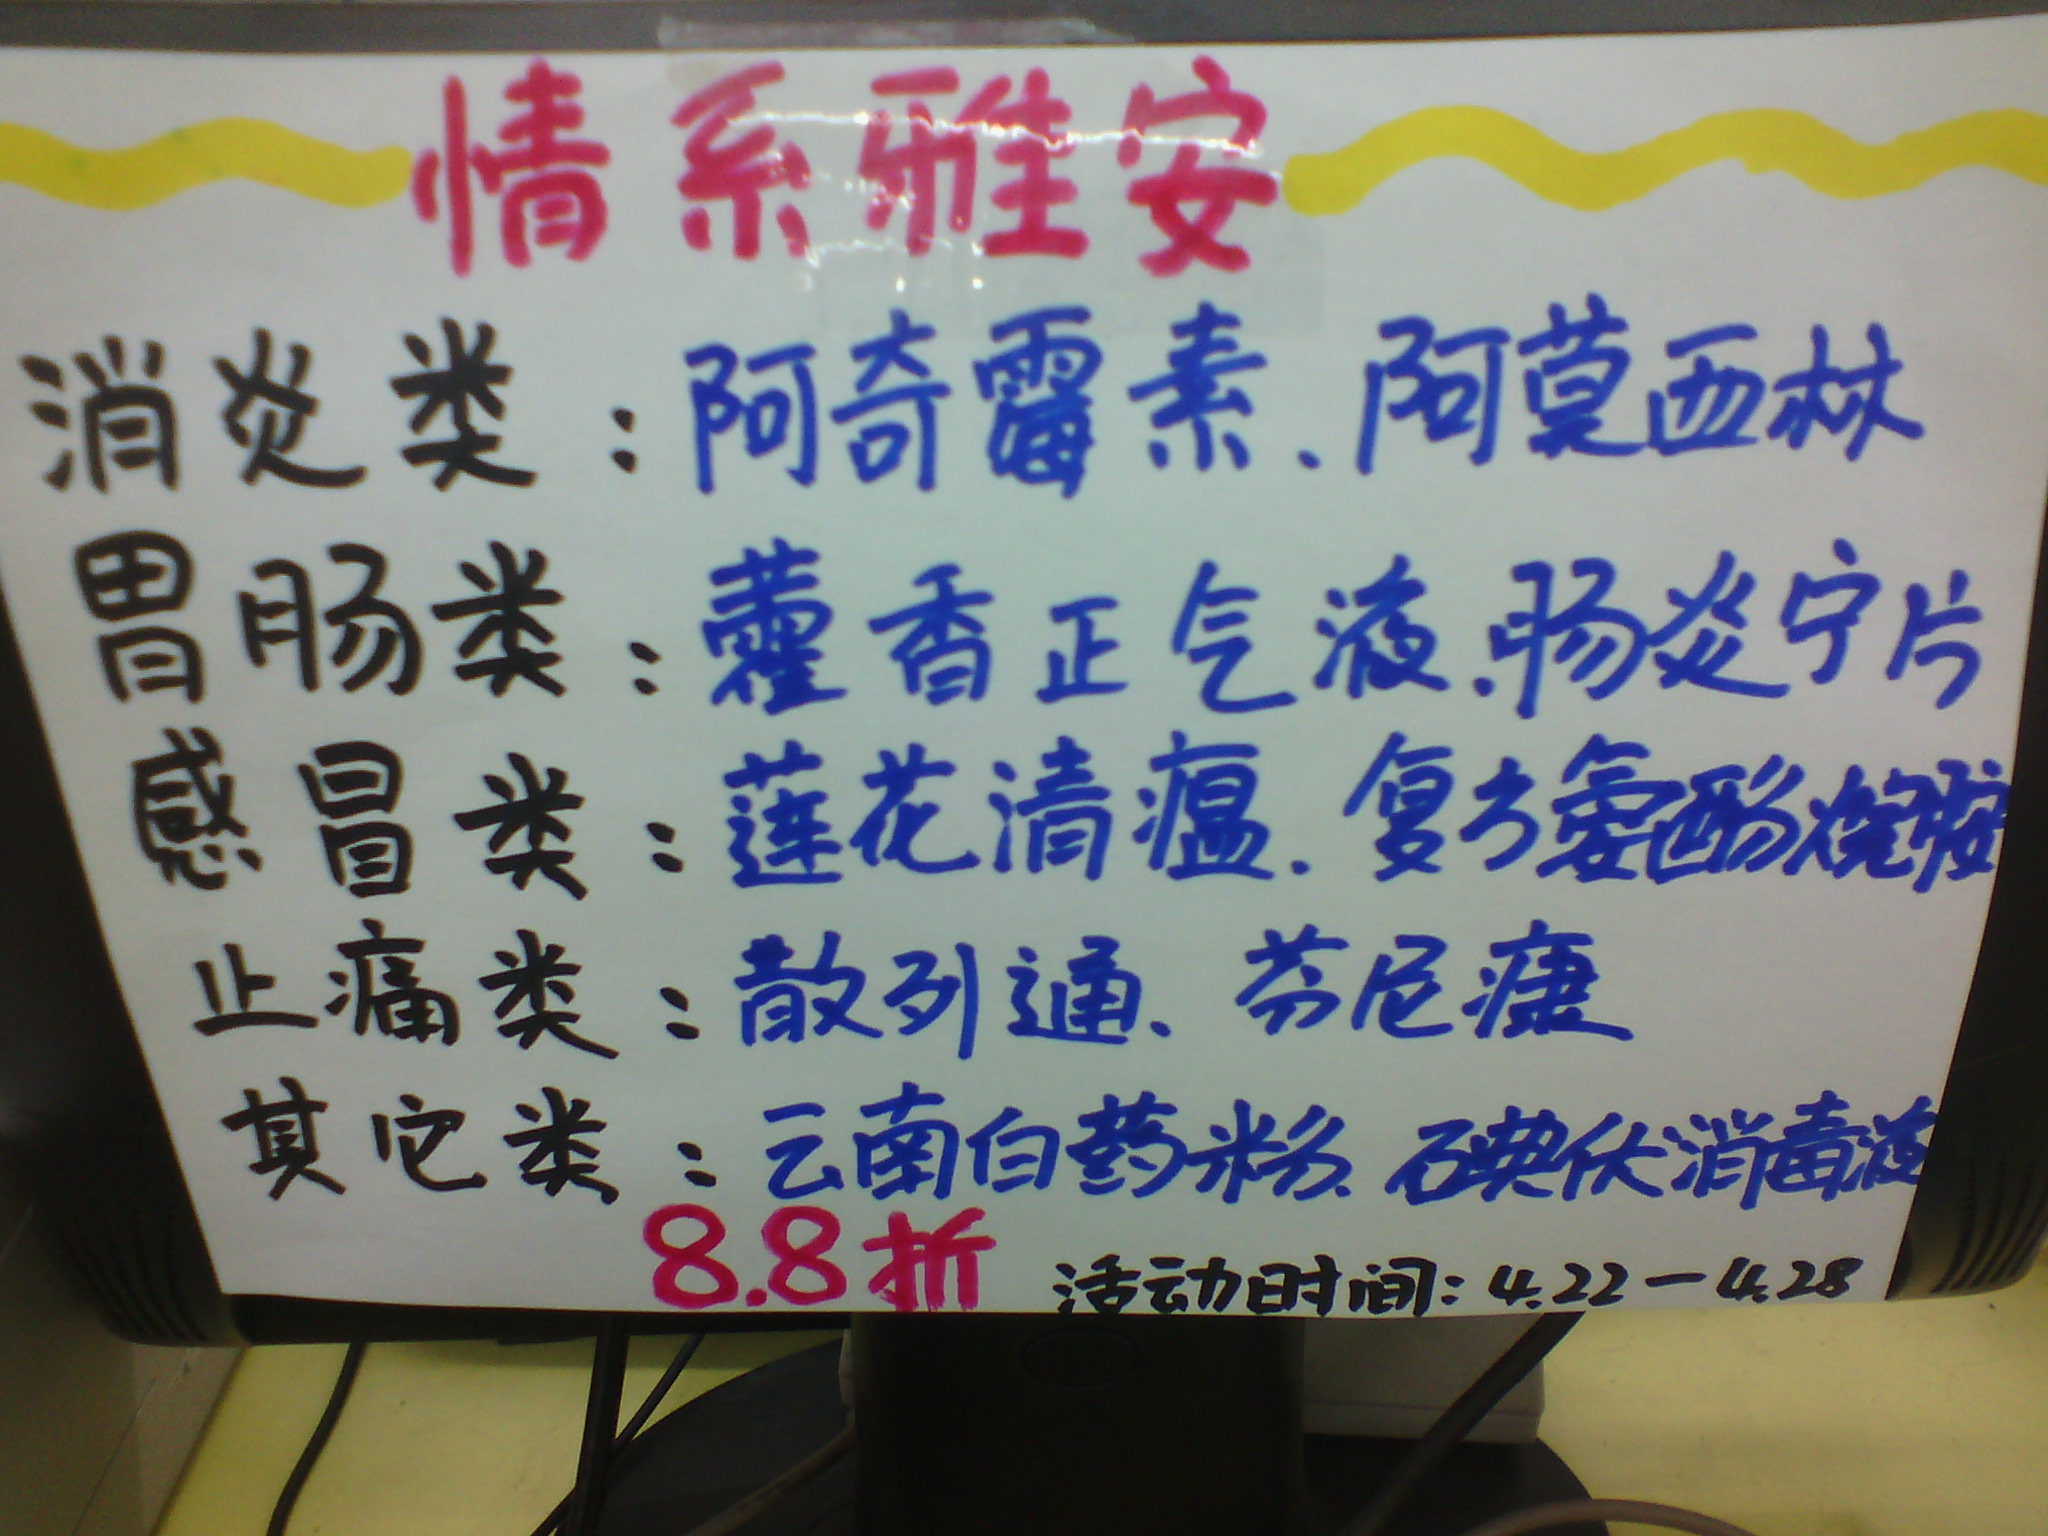 情系雅安
消炎类：阿奇霉素、阿莫西林
胃肠类：藿香正气液、肠炎宁片
感冒类：莲花清瘟、复方氨酚烷胺
止痛类：散列通、芬尼康
其它类：云南白药粉、碘伏消毒液
8.8折 活动时间：4.22—4.28